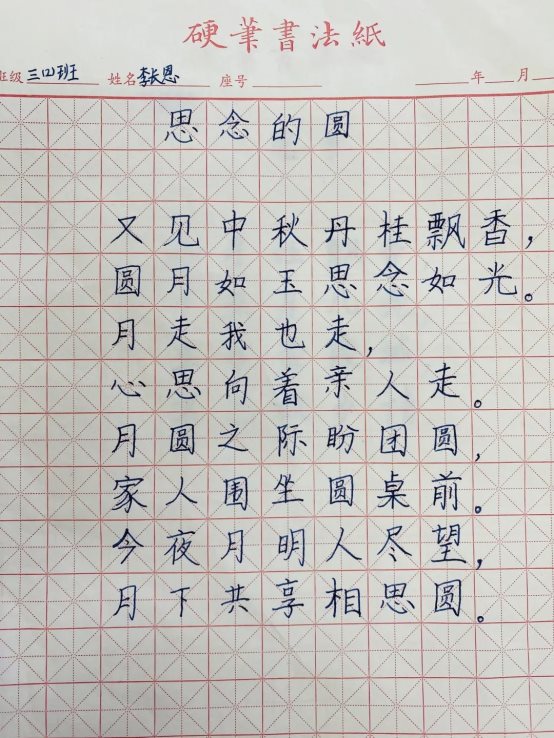 硬筆書法紙
班级 三(2)班 姓名 李长恩 座号 年 月
思念的圆
又见中秋丹桂飘香，
圆月如玉思念如光。
月走我也走，
心思向着亲人走。
月圆之际盼团圆，
家人围坐圆桌前。
今夜月明人尽望，
月下共享相思圆。